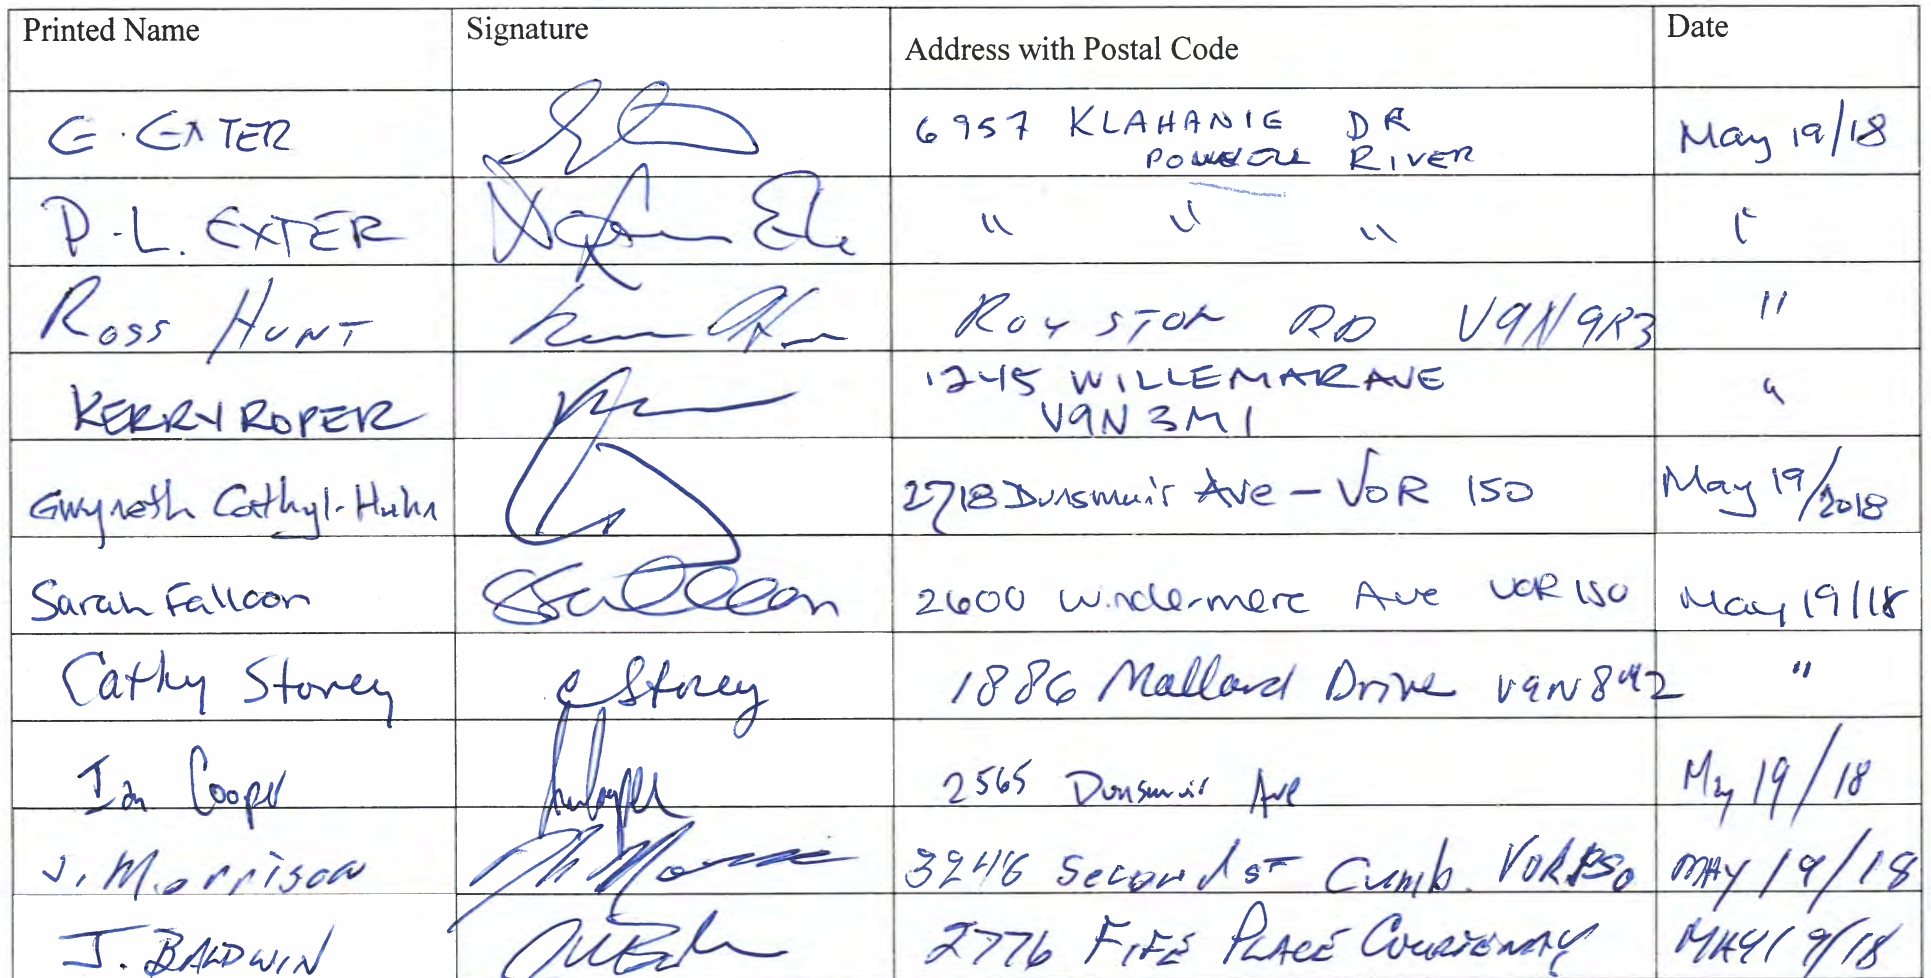 Printed Name Signature Address with Postal Code Date
G. EXTER 6957 KLAHANIE DR May 19/18
POWELL RIVER
P.L. EXTER " " " "
ROSS HUNT ROYSTON RD V9N 9R3 "
KERRY ROPER 1245 WILLEMAR AVE "
V9N 3M1
Gwyneth Cathyl-Huhn 2718 Dunsmuir Ave - V0R 1S0 May 19/2018
Sarah Falloon SFalloon 2600 Windermere Ave V0R 1S0 May 19/18
Cathy Storey C Storey 1886 Mallard Drive "
Ian Cooper 2565 Dunsmuir Ave May 19/18
J. Morrison 3246 Second st Cumb. V0R 1S0 MAY 19/18
J. BALDWIN 2776 FIFE PLACE COURTENAY MAY 19/18